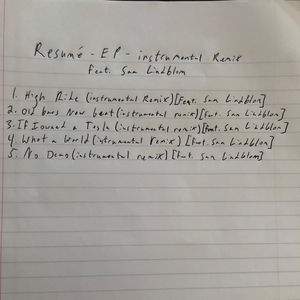 Resumé - EP - instrumental Remix
Feat. Sam Lindblom
1. High Ride (instrumental Remix) [Feat. Sam Lindblom]
2. Old bones New beat (instrumental remix) [feat. Sam Lindblom]
3. If I owned a Tesla (instrumental remix) [feat. Sam Lindblom]
4. What a World (intrumental Remix) [feat. Sam Lindblom]
5. No Demo (instrumental remix) [feat. Sam Lindblom]